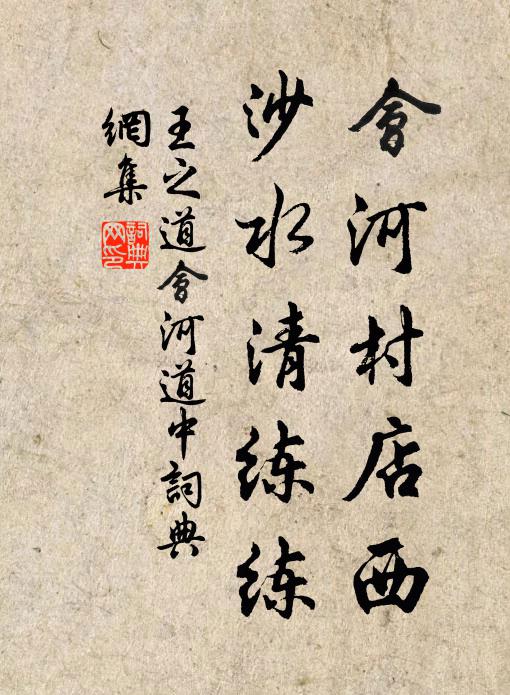 會河村店西
沙水清練練
王之道會河道中詞典
網集
詞典网印